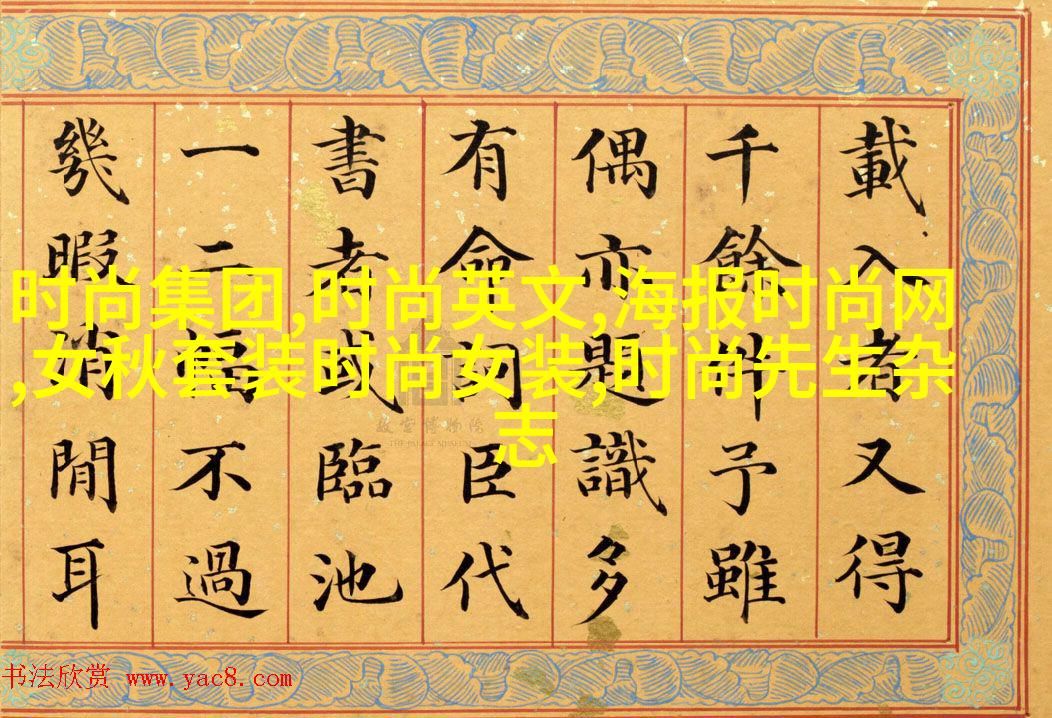 載入者又得
千餘件予雖
偶亦題識多
有命詞臣代
書者或臨池
一二幅不過
幾暇消閒耳
时尚集团,时尚英文,海报时尚网
,女秋套装时尚女装,时尚先生杂
志
故宫博物院
THE PALACE MUSEUM
书法欣赏 www.yac8.com